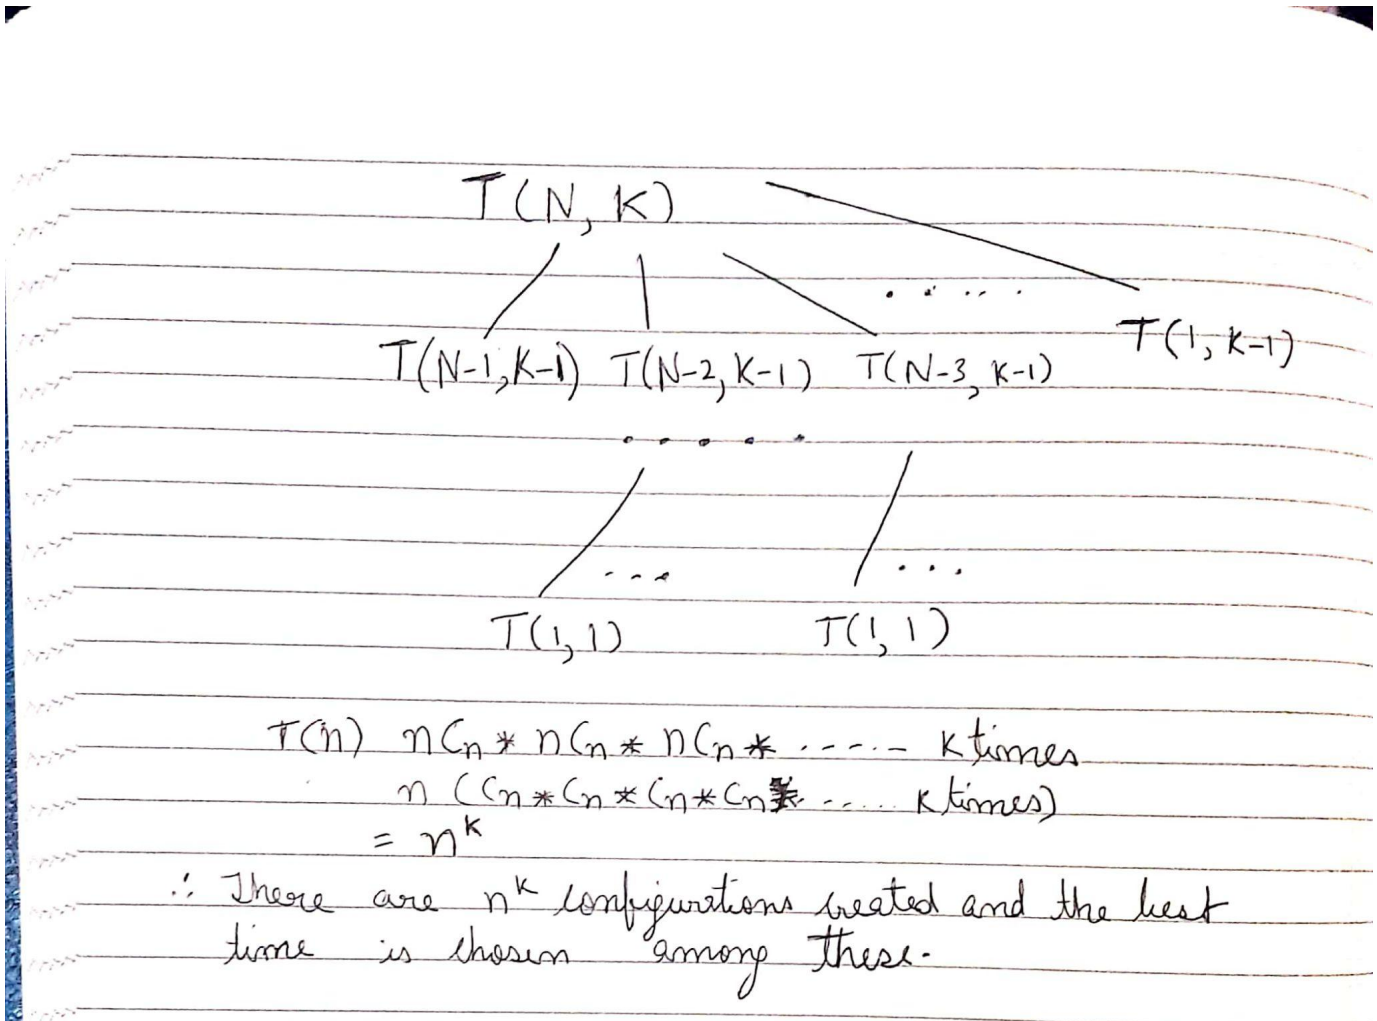 T(N, K)
T(N-1, K-1) T(N-2, K-1) T(N-3, K-1) ..... T(1, K-1)
.....
... ...
T(1, 1) T(1, 1)
T(n) nCn * nCn * nCn * ...... K times
n (Cn * Cn * Cn * Cn * ..... K times)
= n^K
∴ There are n^K configurations created and the best
time is chosen among these.